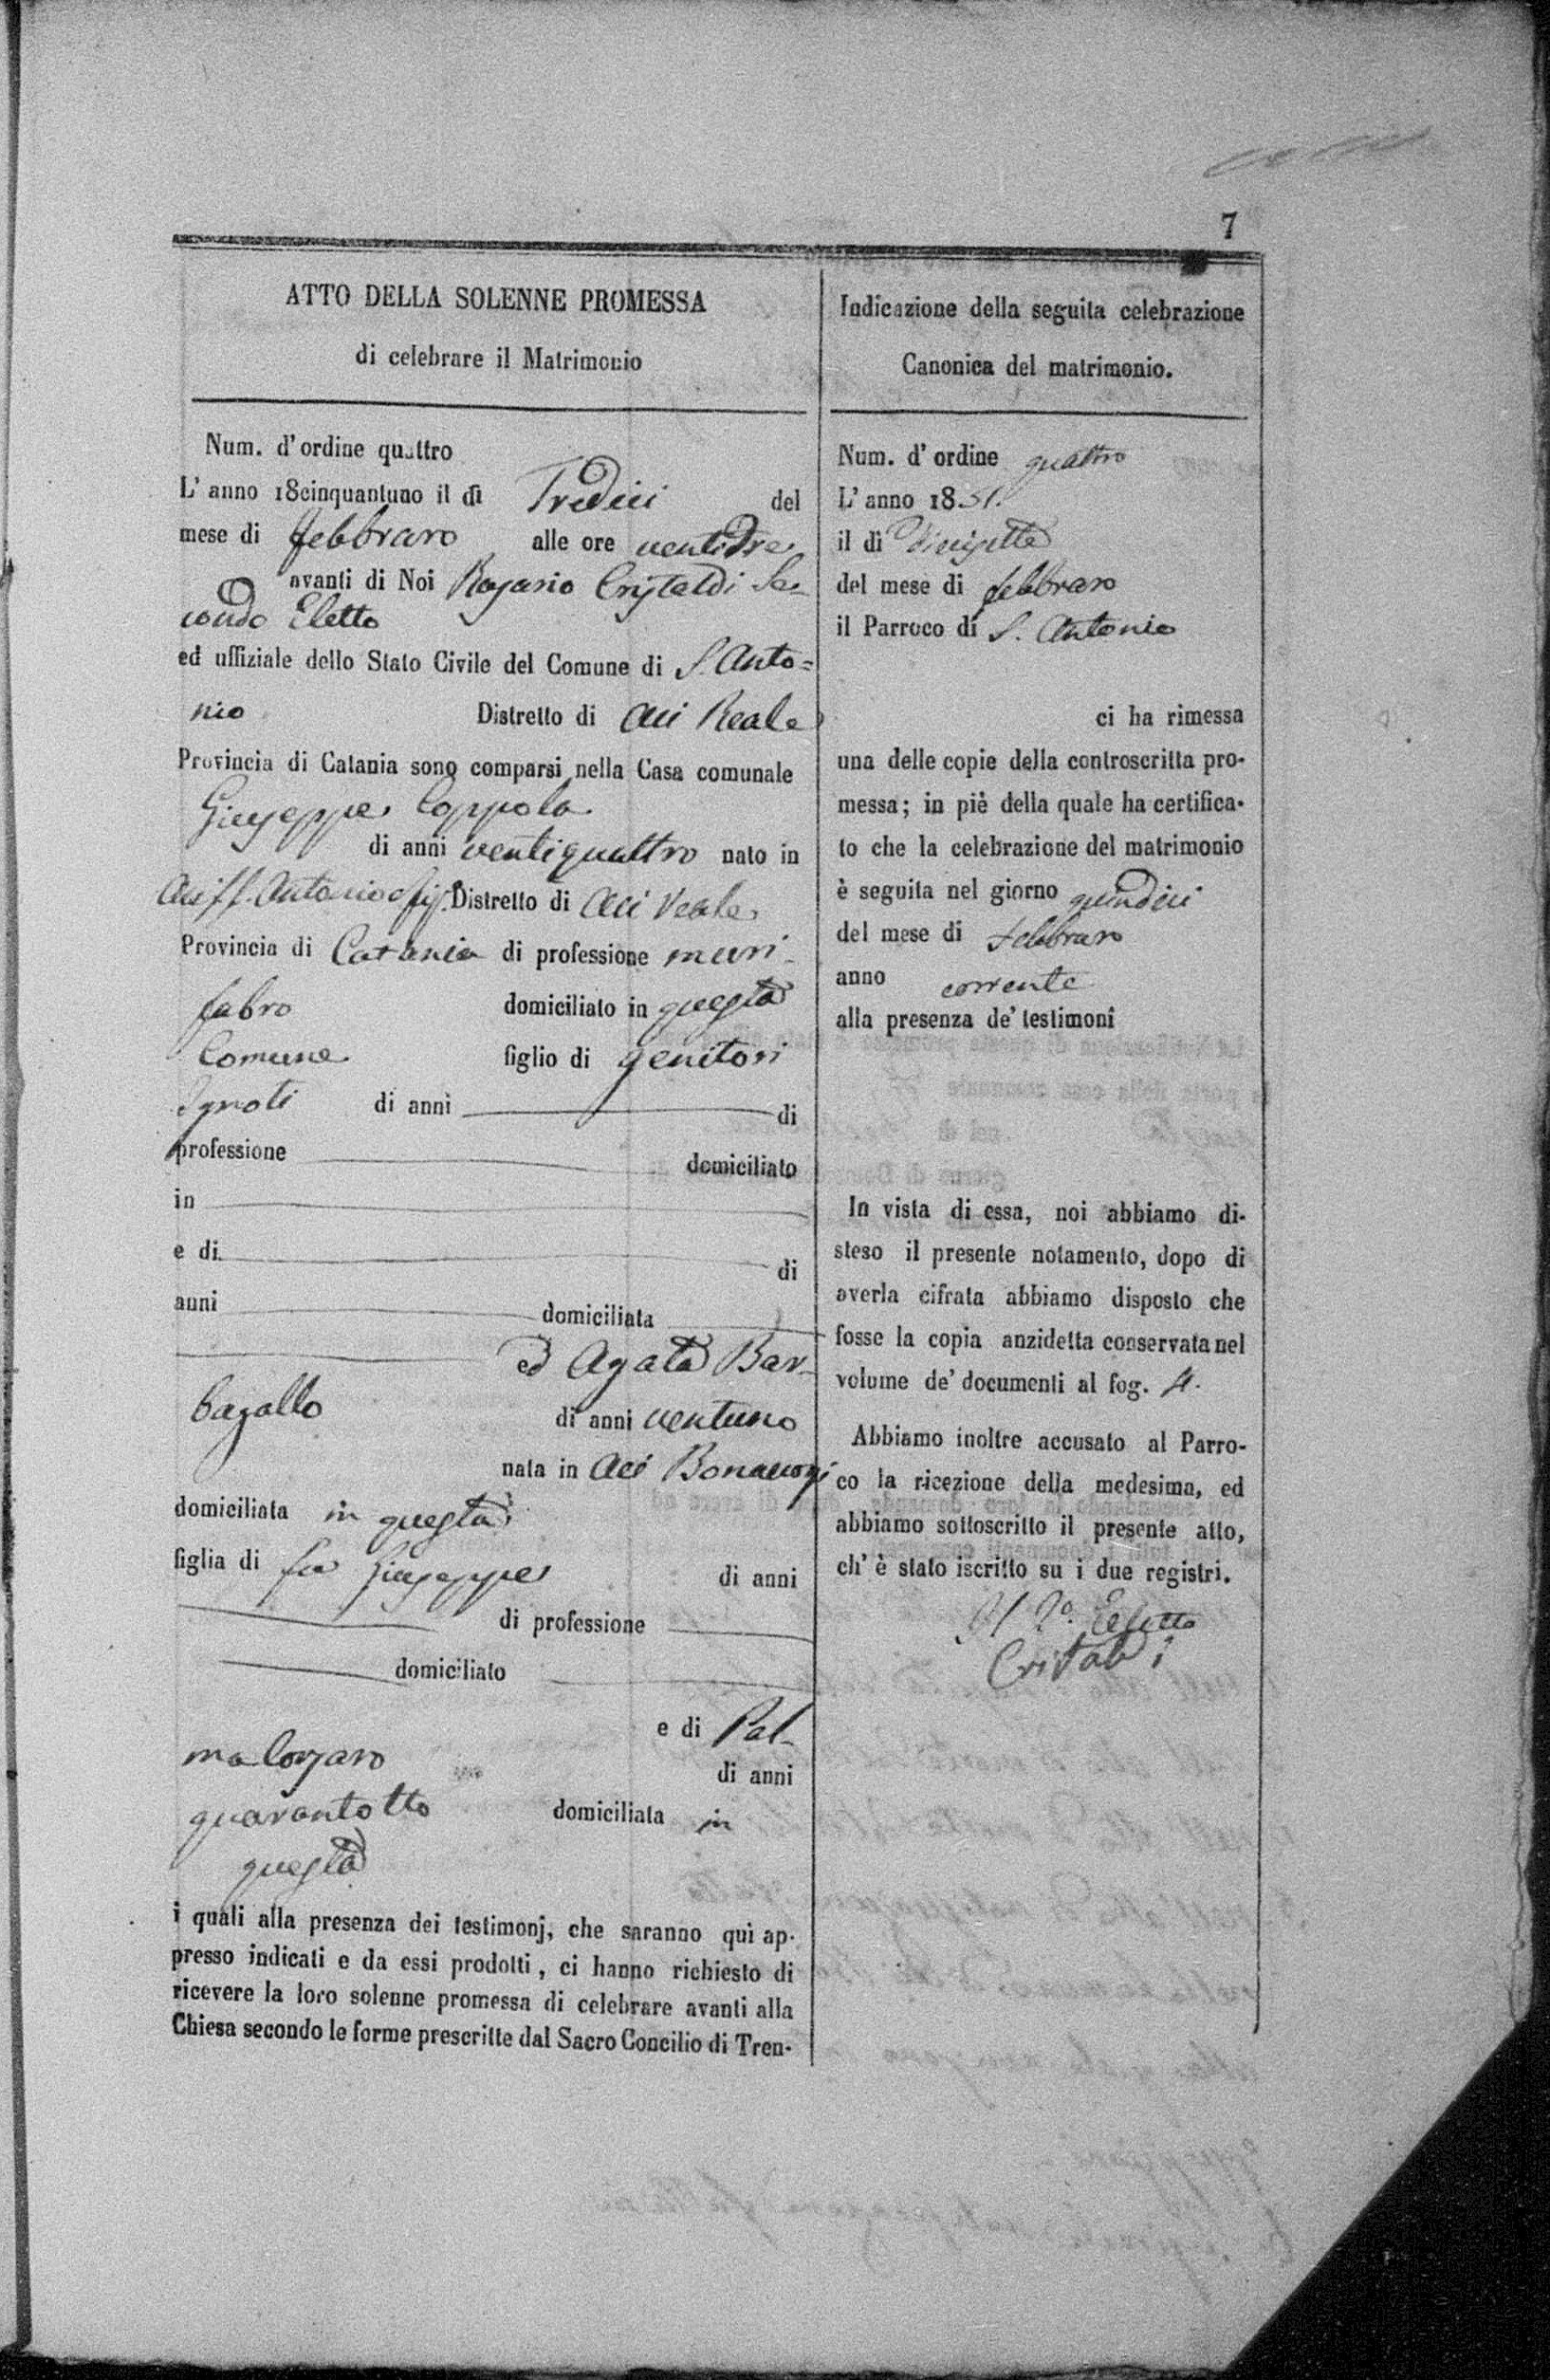 7
ATTO DELLA SOLENNE PROMESSA
di celebrare il Matrimonio
Num. d'ordine quattro
L'anno 18cinquantuno il dì Tredici del
mese di febbraro alle ore ventidue
avanti di Noi Rosario Cristaldi Se-
condo Eletto
ed uffiziale dello Stato Civile del Comune di S. Anto=
nio Distretto di Aci Reale
Provincia di Catania sono comparsi nella Casa comunale
Giuseppe Coppola
di anni ventiquattro nato in
Aci S. Antonio e Distretto di Aci reale
Provincia di Catania di professione muri-
fabro domiciliato in questa
Comune figlio di genitori
Ignoti di anni di
professione domiciliato
in
e di di
anni domiciliata
ed Agata Bar-
bagallo di anni ventuno
nata in Aci Bonaccorsi
domiciliata in questa
figlia di fu Giuseppe di anni
di professione
domiciliato
e di Pal-
ma di anni
quarantotto domiciliata in
questa
i quali alla presenza dei testimonj, che saranno qui ap-
presso indicati e da essi prodotti, ci hanno richiesto di
ricevere la loro solenne promessa di celebrare avanti alla
Chiesa secondo le forme prescritte dal Sacro Concilio di Tren-
Indicazione della seguita celebrazione
Canonica del matrimonio.
Num. d'ordine quattro
L'anno 1851.
il dì Dicisette
del mese di febbraro
il Parroco di S. Antonio
ci ha rimessa
una delle copie della controscritta pro-
messa; in piè della quale ha certifica-
to che la celebrazione del matrimonio
è seguita nel giorno quindici
del mese di Febbraro
anno corrente
alla presenza de' testimonî
In vista di essa, noi abbiamo di-
steso il presente notamento, dopo di
averla cifrata abbiamo disposto che
fosse la copia anzidetta conservata nel
volume de' documenti al fog. 4.
Abbiamo inoltre accusato al Parro-
co la ricezione della medesima, ed
abbiamo sottoscritto il presente atto,
ch' è stato iscritto su i due registri.
Il 2o. Eletto
Cristaldi